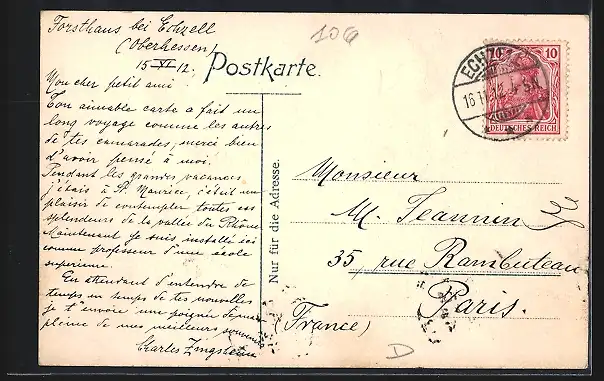 Forsthaus bei Echzell
(Oberhessen)
15 XI 12.
106
Postkarte.
Mon cher petit ami
Ton aimable carte a fait un
long voyage comme les autres
de tes camarades; merci bien
d'avoir pensé à moi.
Pendant les grandes vacances
j'étais à St. Maurice, c'était un
plaisir de contempler toutes les
splendeurs de la vallée du Rhône
Maintenant je suis installé ici
comme professeur d'une école
supérieure.
En attendant d'entendre de
temps en temps de tes nouvelles
je t'envoie une poignée de main
pleine de mes meilleurs souvenirs
Charles Zingstein
Nur für die Adresse.
ECHZELL
10
DEUTSCHES REICH
Monsieur
M. Jeannin
35 rue Rambuteau
Paris.
(France)
D